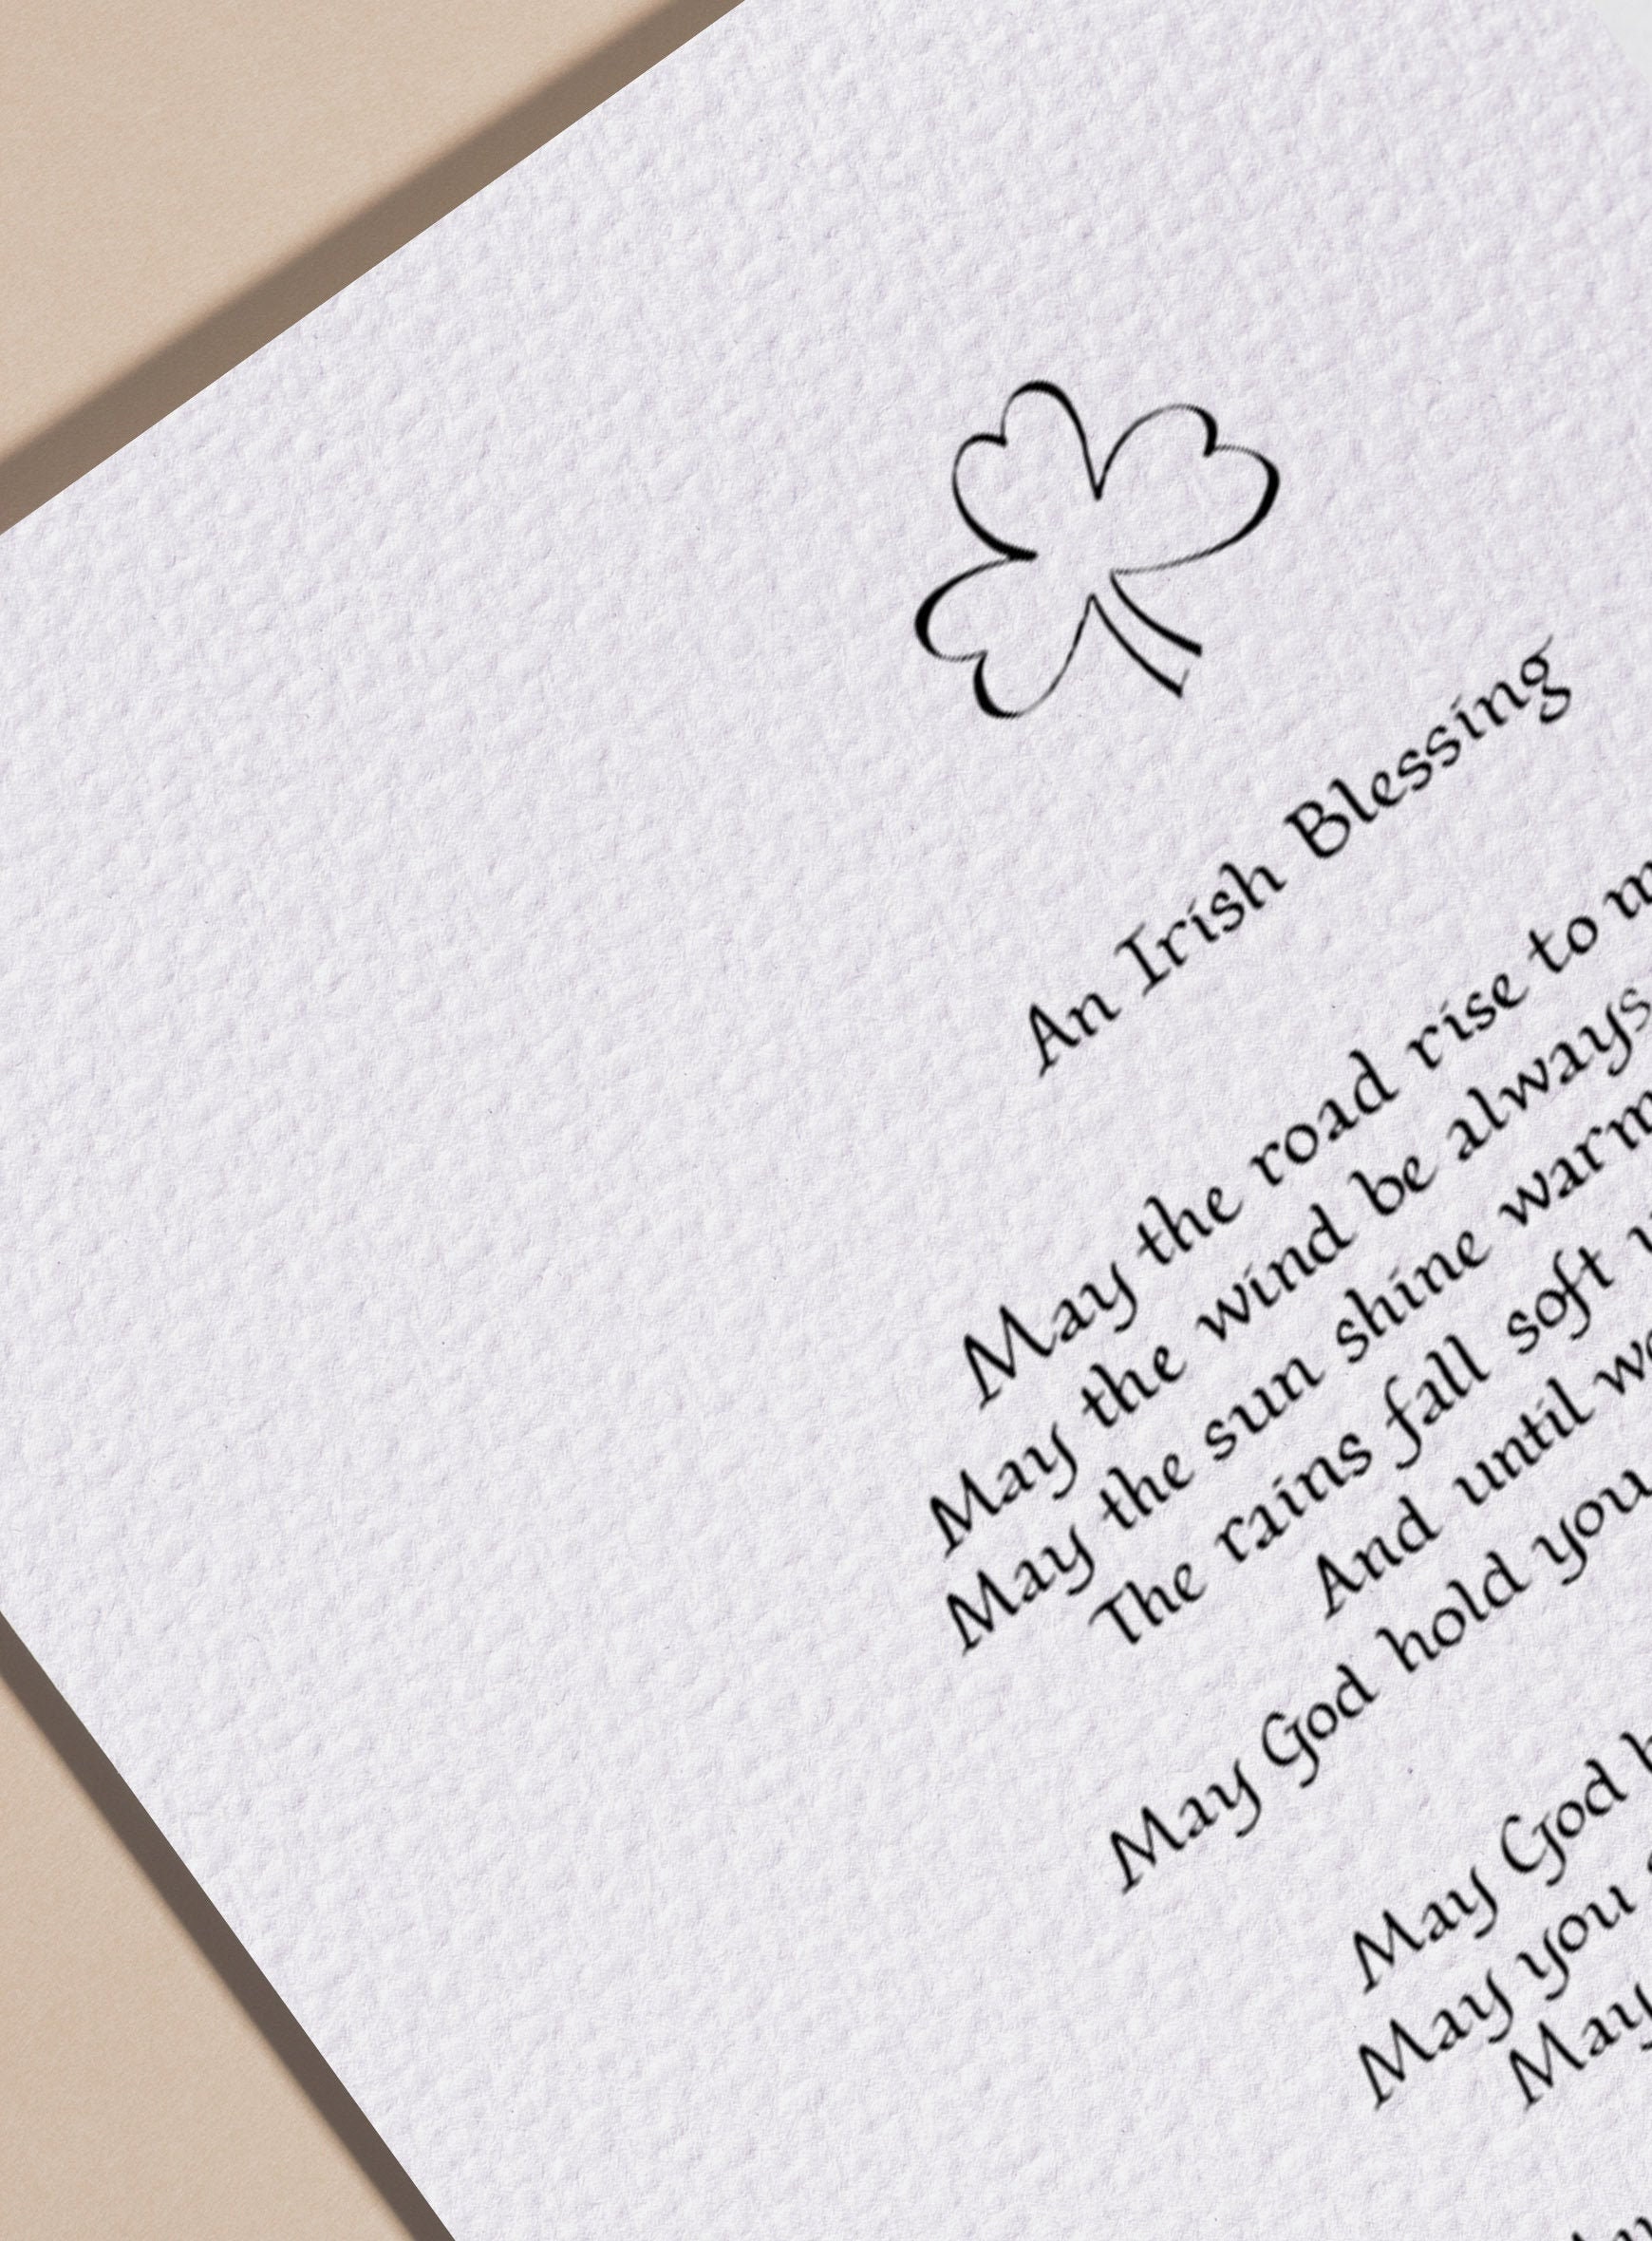 An Irish Blessing
May the road rise to m
May the wind be always
May the sun shine warm
The rains fall soft
And until we
May God hold you
May God
May you
May